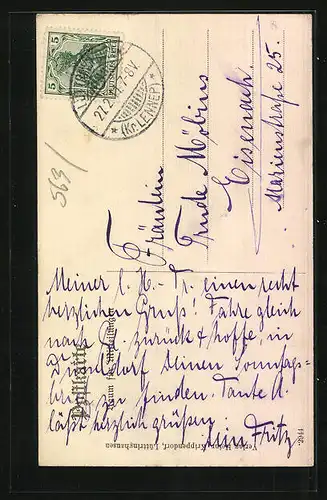 5
DEUTSCHES REICH
27.2.11. 7-8V
* (Kr. LENNEP) *
563/
Postkarte
Raum für Mitteilungen
Fräulein
Trude Möbius
Eisenach
Marienstraße 25.
Meiner l. H.-Tr. einen recht
herzlichen Gruß! Fahre gleich
nach D. zurück & hoffe, in
Düsseldorf Deinen Sonntags-
brief zu finden. Tante A.
läßt herzlich grüßen.
Dein Fritz
Krippendorf, Lüttringhausen
2944